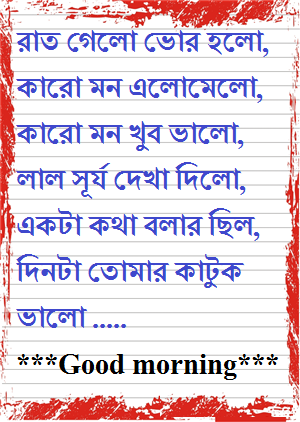 রাত গেলো ভোর হলো,
কারো মন এলোমেলো,
কারো মন খুব ভালো,
লাল সূর্য দেখা দিলো,
একটা কথা বলার ছিল,
দিনটা তোমার কাটুক
ভালো .....
***Good morning***